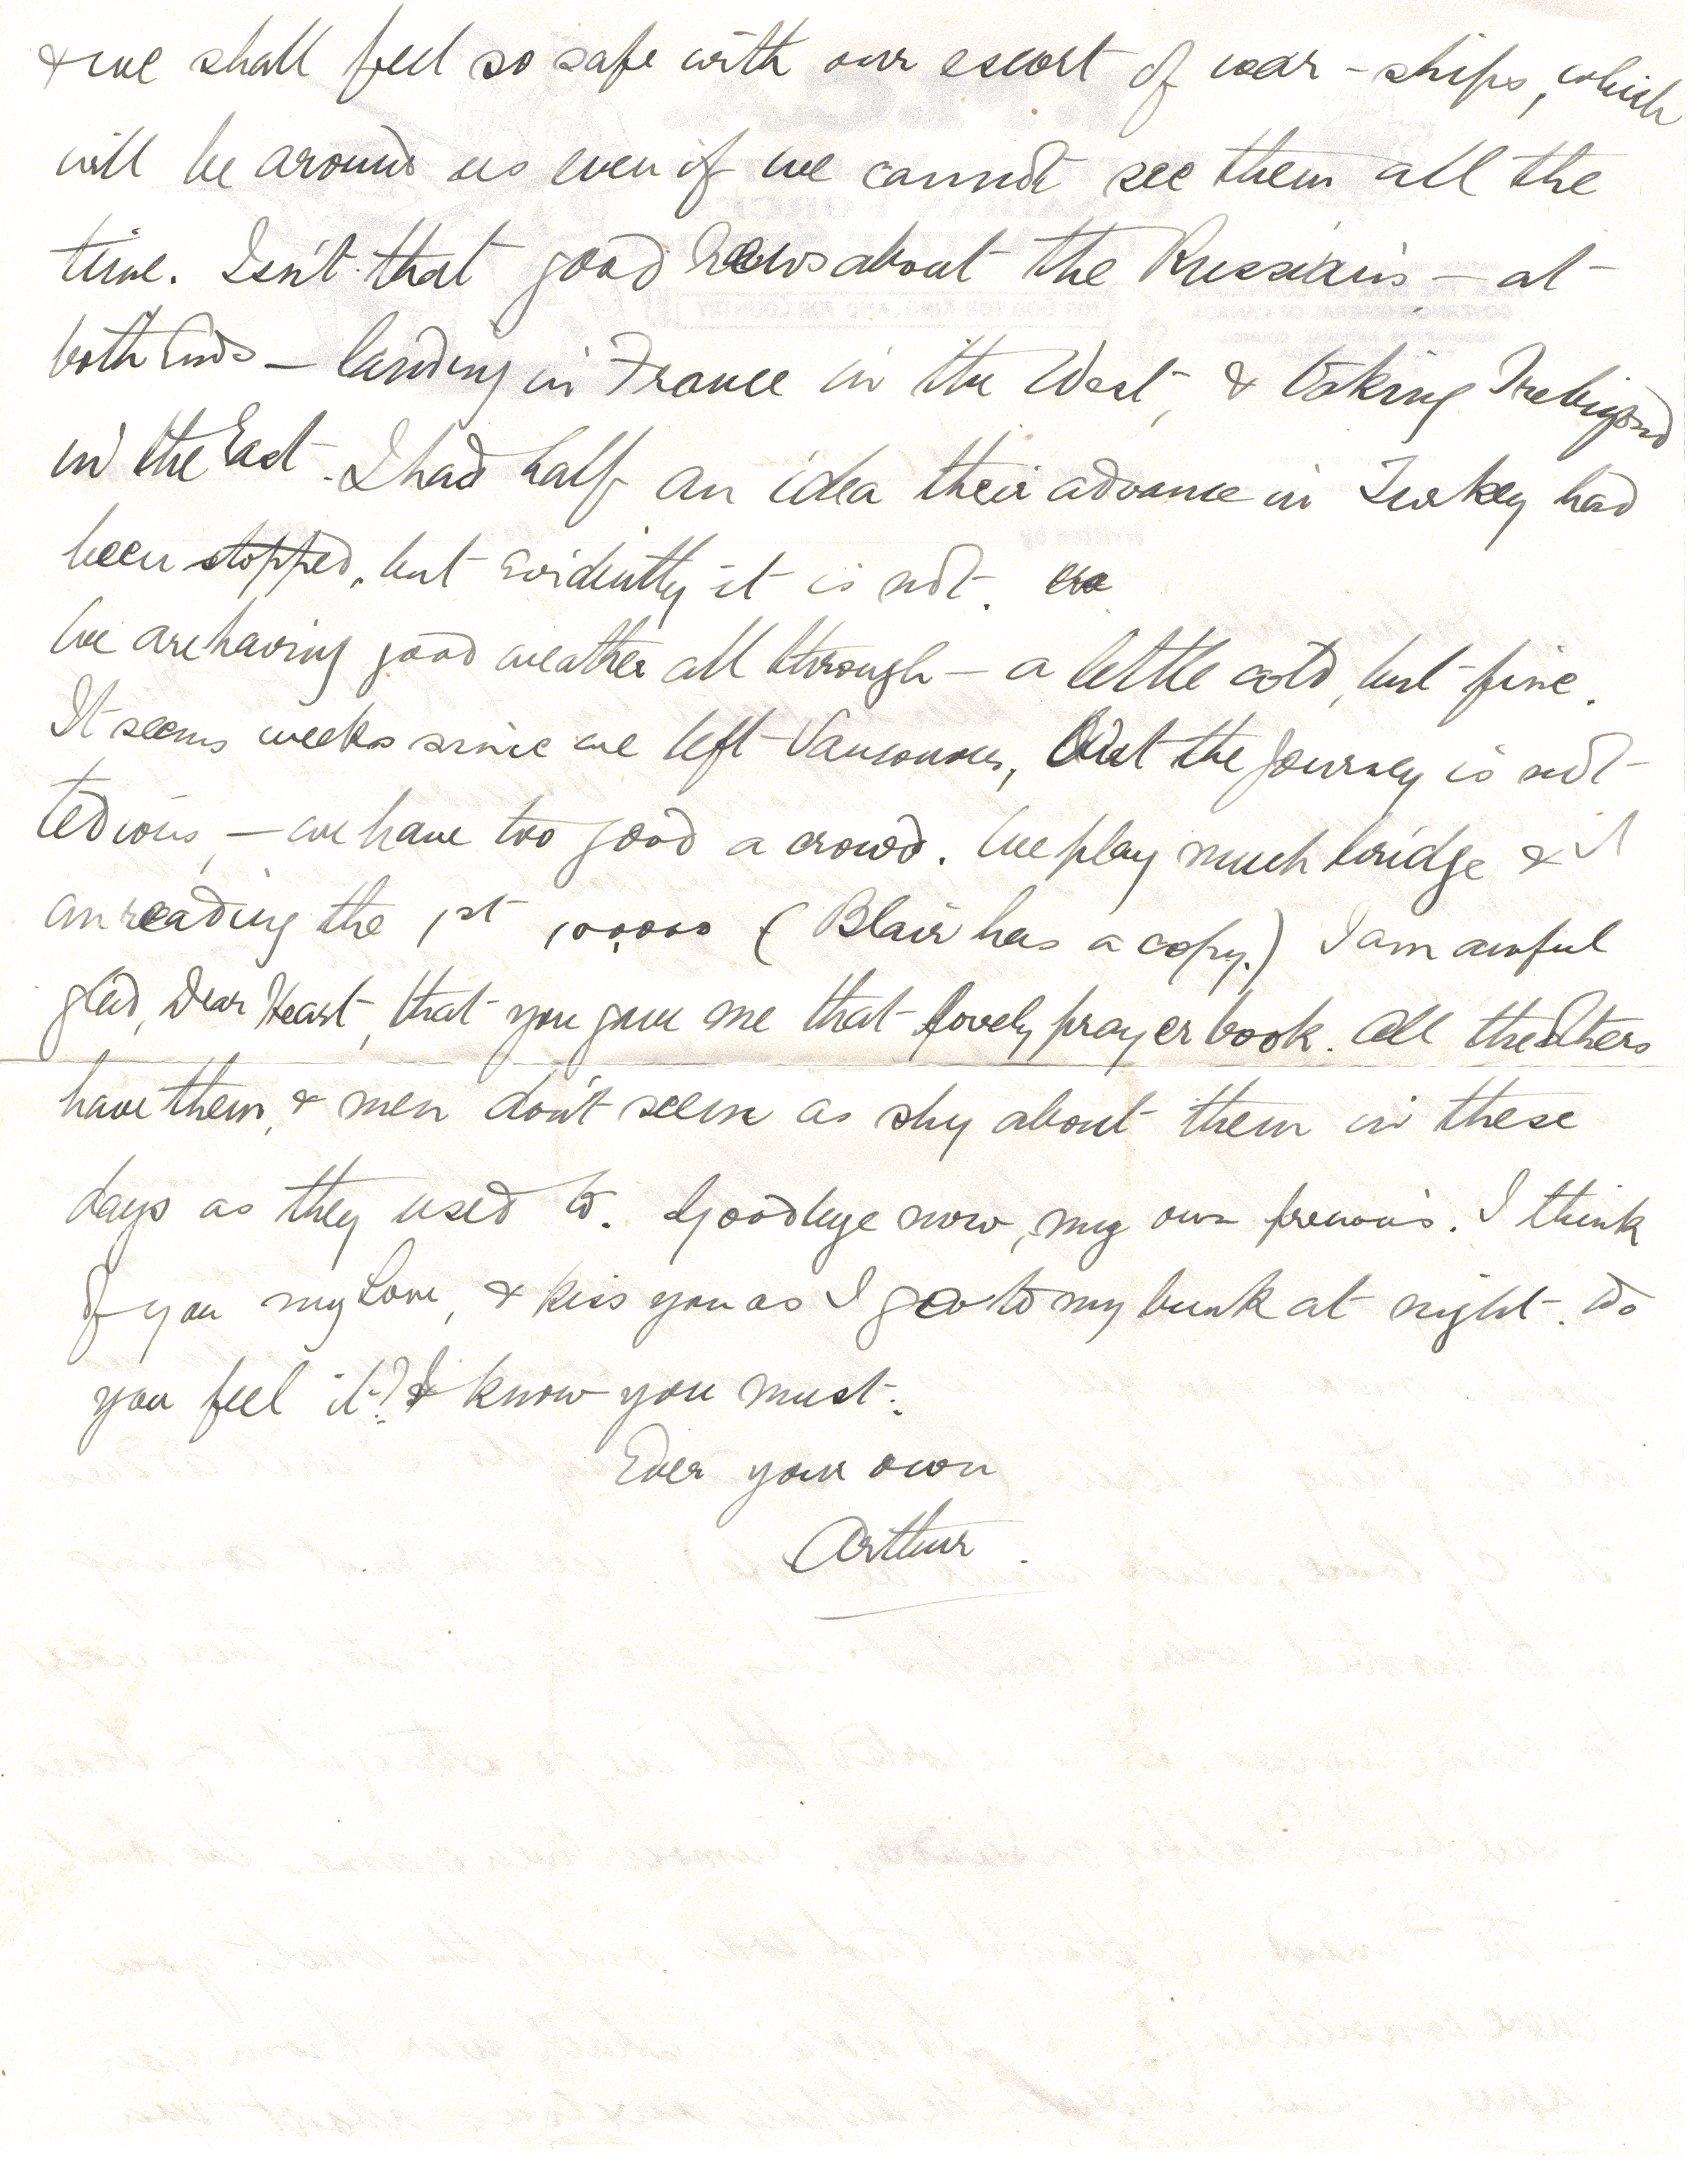 & we shall feel so safe with our escort of war-ships, which
will be around us even if we cannot see them all the
time. Isn't that good news about the Russians – at
both Ends – landing in France in the West, & taking Trebizond
in the East. I had half an idea their advance in Turkey had
been stopped, but evidently it is not.
We are having good weather all through – a little cold, but fine.
It seems weeks since we left Vancouver, But the journey is not
tedious, – we have too good a crowd. We play much bridge & I
am reading the 1st 100,000 (Blair has a copy.) I am awful
glad, Dear Heart, that you gave me that lovely prayer book. All the others
have them, & men don't seem as shy about them in these
days as they used to. Goodbye now, my own precious. I think
of you my Love, & kiss you as I go to my bunk at night. Do
you feel it? I know you must.
Ever your own
Arthur.